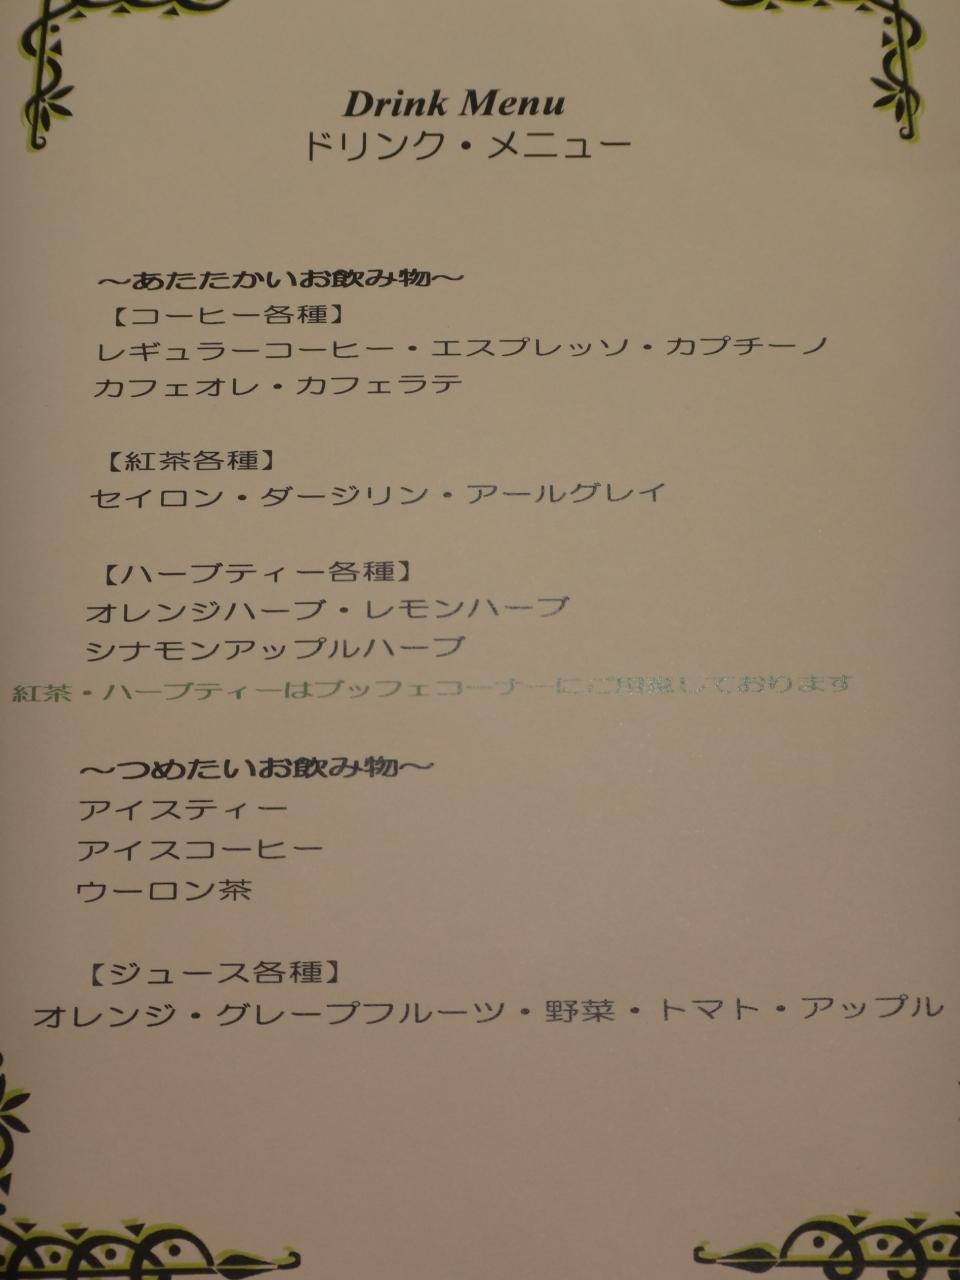 Drink Menu
ドリンク・メニュー
～あたたかいお飲み物～
【コーヒー各種】
レギュラーコーヒー・エスプレッソ・カプチーノ
カフェオレ・カフェラテ
【紅茶各種】
セイロン・ダージリン・アールグレイ
【ハーブティー各種】
オレンジハーブ・レモンハーブ
シナモンアップルハーブ
紅茶・ハーブティーはブッフェコーナーにご用意しております
～つめたいお飲み物～
アイスティー
アイスコーヒー
ウーロン茶
【ジュース各種】
オレンジ・グレープフルーツ・野菜・トマト・アップル